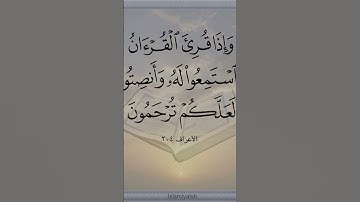 وَإِذَا قُرِئَ ٱلْقُرْءَانُ
ٱسْتَمِعُوا۟ لَهُۥ وَأَنصِتُو
لَعَلَّكُمْ تُرْحَمُونَ
الأعراف ٢٠٤